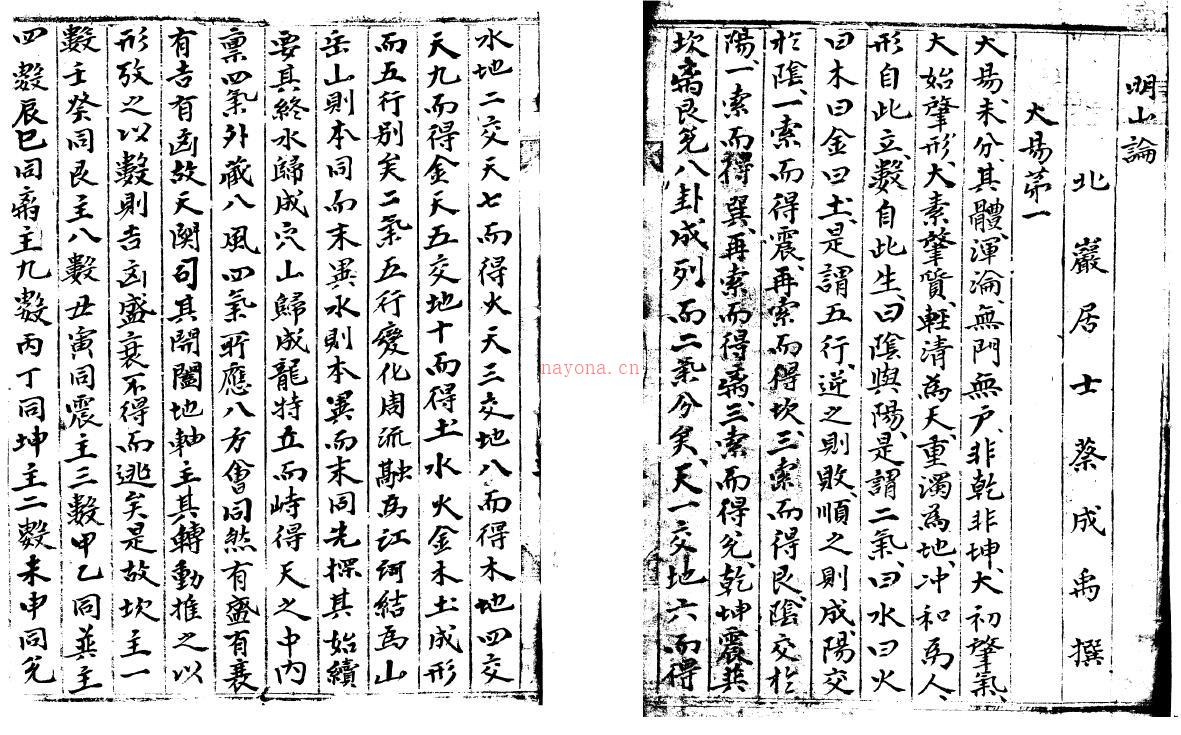 明山論
北巖居士蔡成禹撰
大易第一
大易未分其體渾淪無門無戶非乾非坤大初肇氣
大始肇形大素肇質輕清為天重濁為地冲和為人
形自此立數自此生曰陰與陽是謂二氣曰水曰火
曰木曰金曰土是謂五行逆之則敗順之則成陽交
於陰一索而得震再索而得坎三索而得艮陰交於
陽一索而得巽再索而得离三索而得兌乾坤震巽
坎离艮兌八卦成列而二氣分矣天一交地六而得
水地二交天七而得火天三交地八而得木地四交
天九而得金天五交地十而得土水火金木土成形
而五行別矣二氣五行變化周流融為江河結為山
岳山則本同而末異水則本異而末同先探其始續
要其終水歸成穴山歸成龍特立而峙得天之中內
稟四氣外藏八風四氣所應八方會同然有盛有衰
有吉有凶故天關司其開闔地軸主其轉動推之以
形攷之以數則吉凶盛衰不得而逃矣是故坎主一
數壬癸同艮主八數丑寅同震主三數甲乙同巽主
四數辰巳同离主九數丙丁同坤主二數未申同兌
nayona.cn